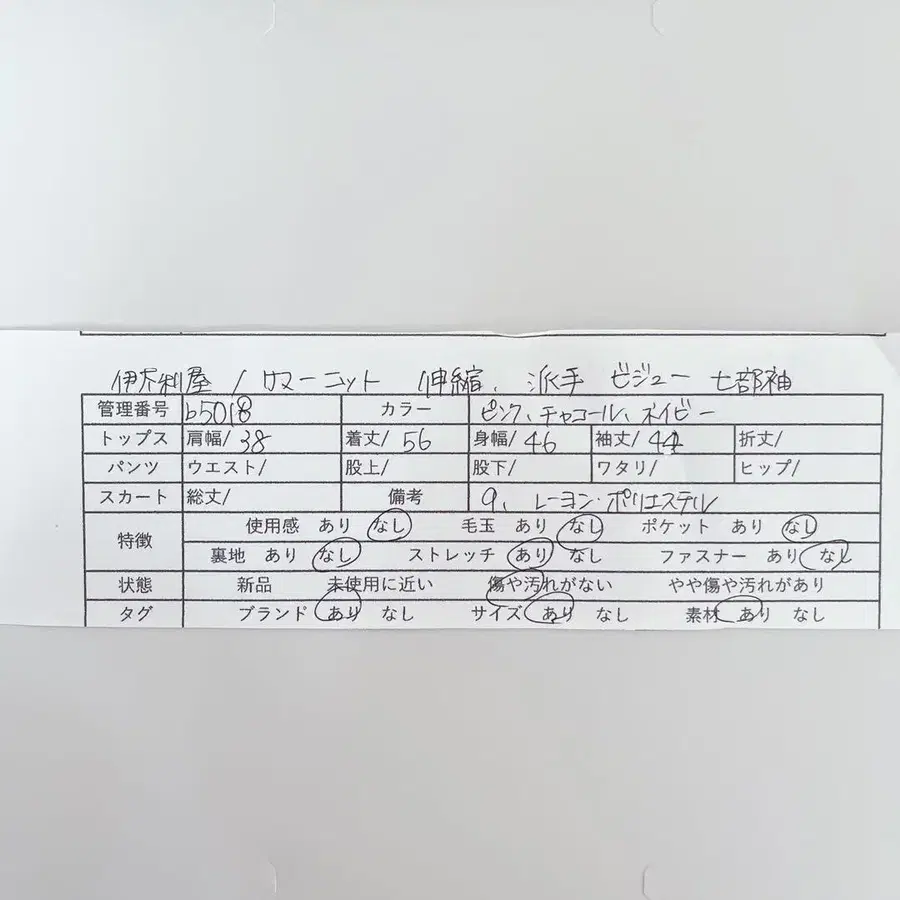 伊太利屋/サマーニット 伸縮、派手 ビジュー 七部袖
管理番号 b5018 カラー ピンク、チャコール、ネイビー
トップス 肩幅/ 38 着丈/ 56 身幅/ 46 袖丈/ 44 折丈/
パンツ ウエスト/ 股上/ 股下/ ワタリ/ ヒップ/
スカート 総丈/ 備考 9、レーヨン・ポリエステル
特徴 使用感 あり なし 毛玉 あり なし ポケット あり なし
裏地 あり なし ストレッチ あり なし ファスナー あり なし
状態 新品 未使用に近い 傷や汚れがない やや傷や汚れがあり
タグ ブランド あり なし サイズ あり なし 素材 あり なし